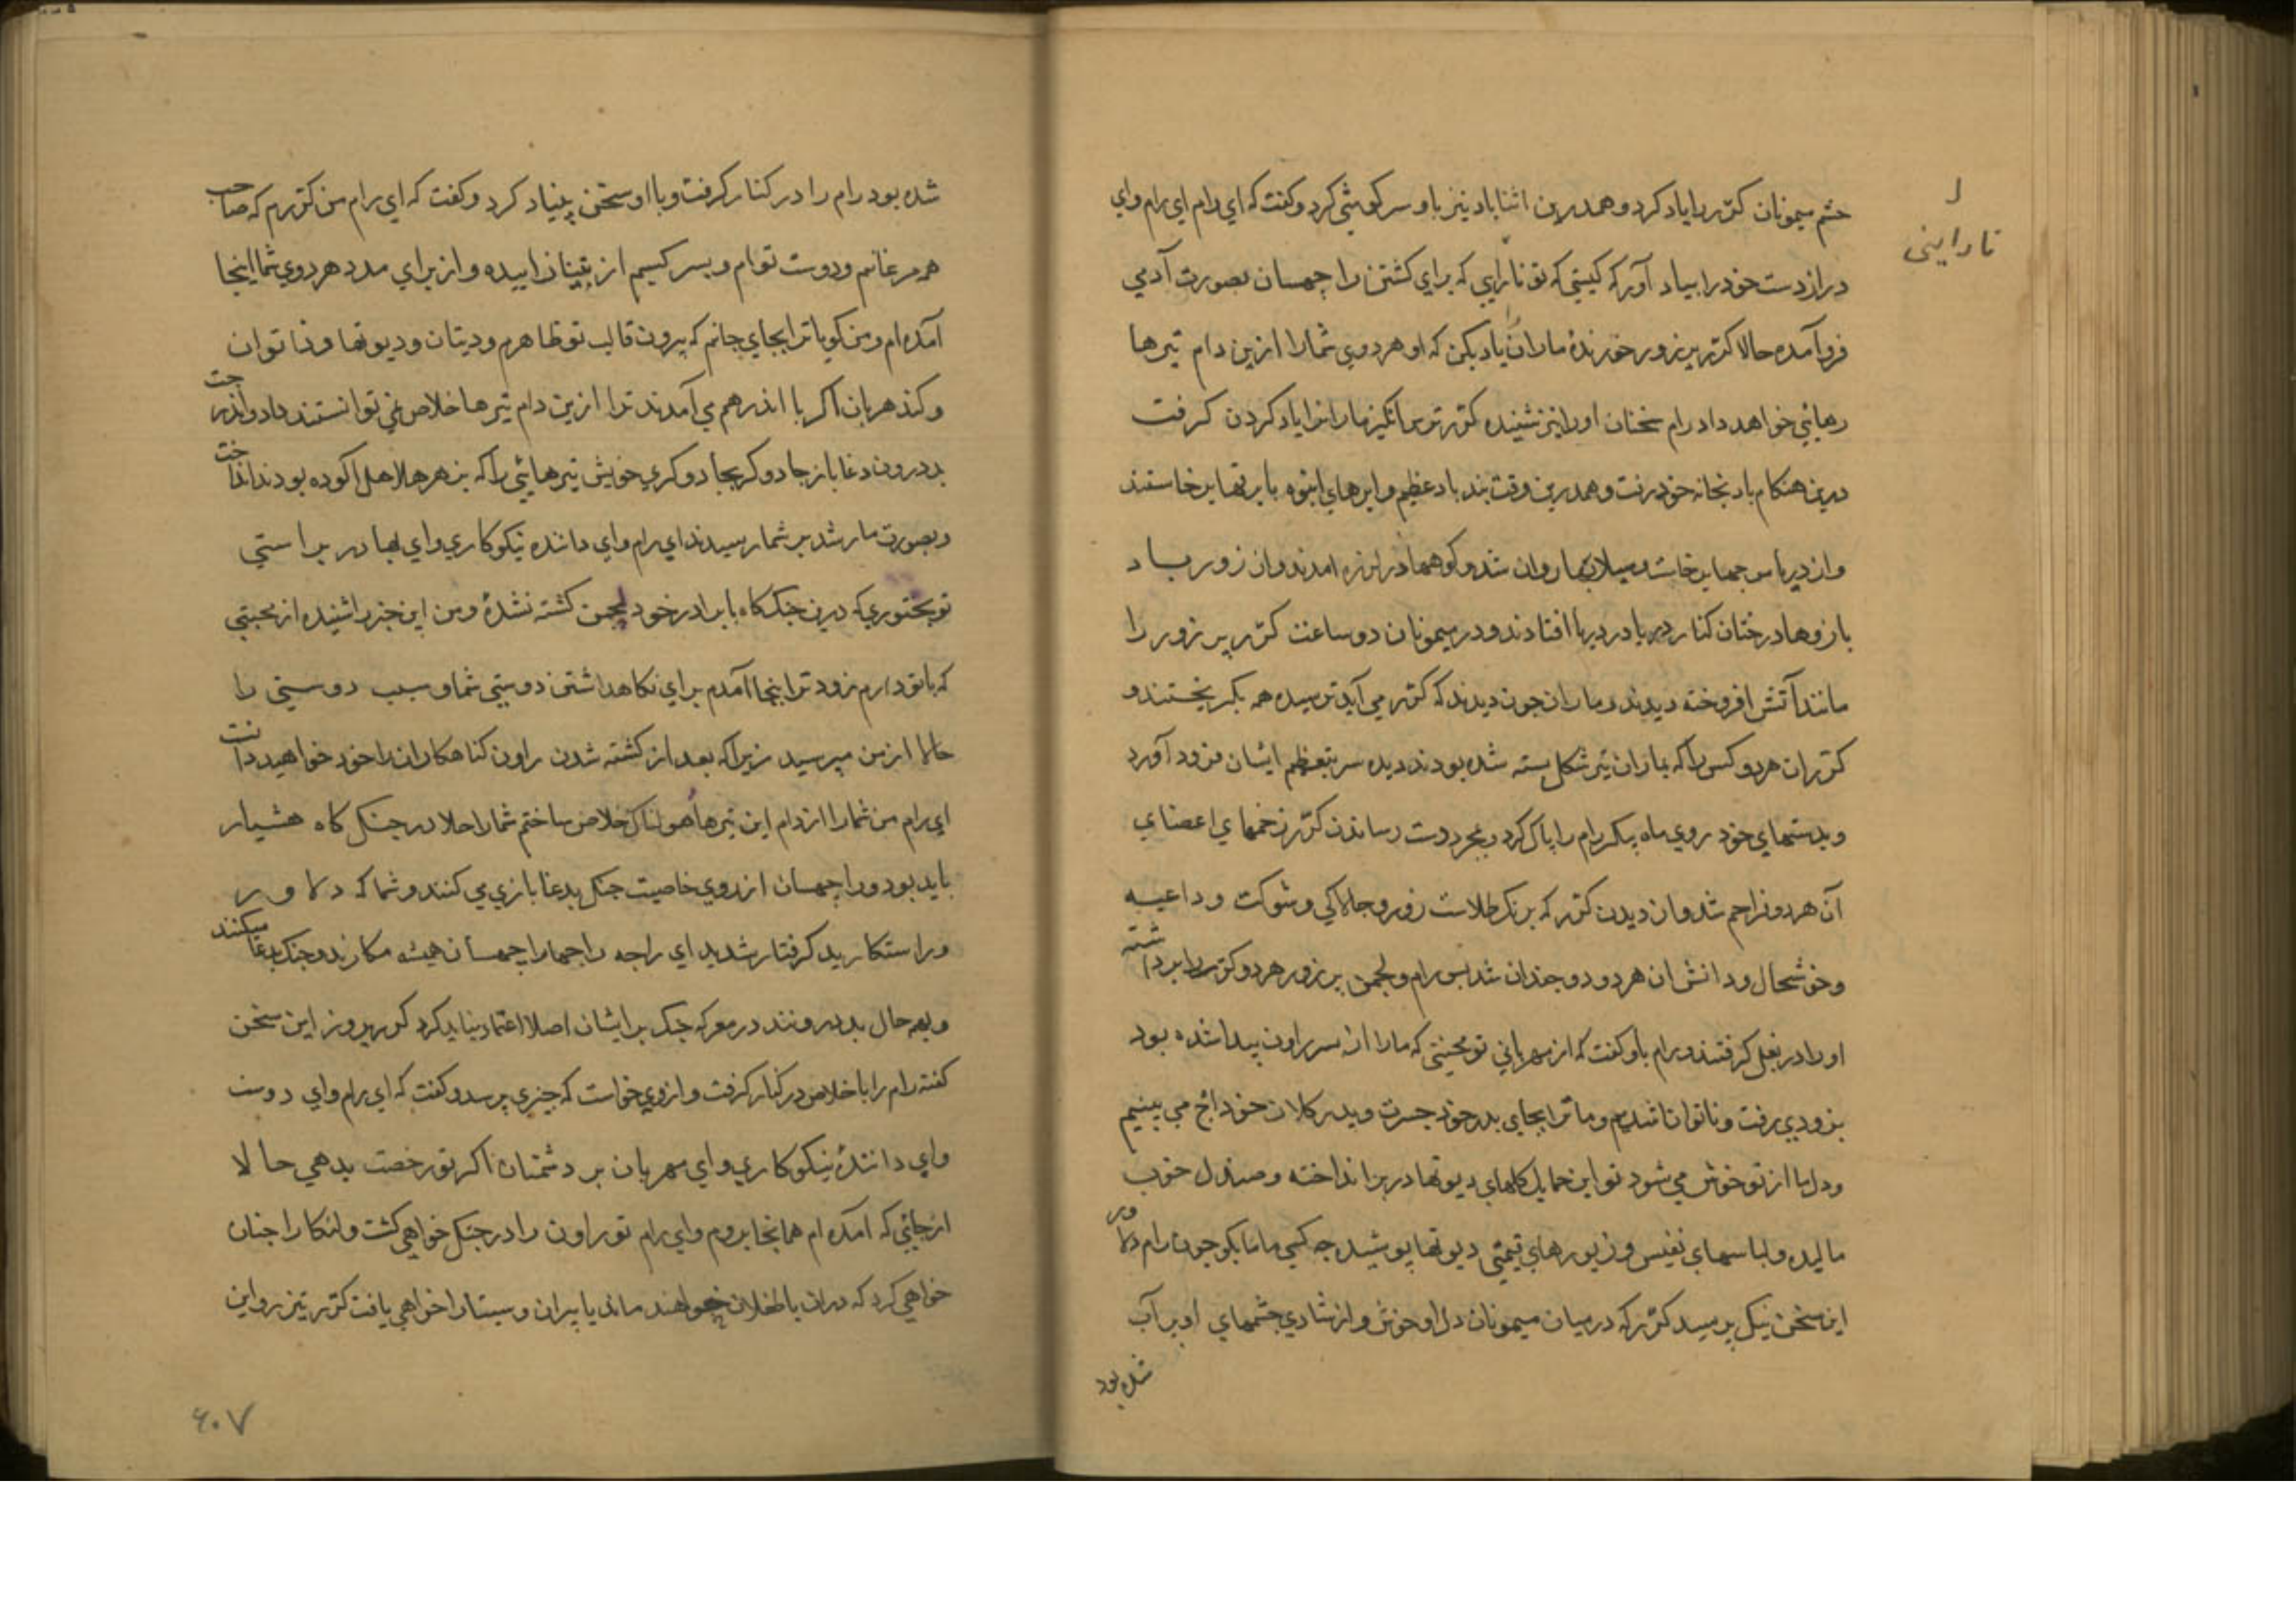 ل
ناراینی
حشم میمونان کترر را یاد کرد و همدرین اثنا باد نیز باو سرکوشی کرد و کفت که ای رام ای رام وای
دراز دست خود را بیاد آور که کیستی که تو نارایی که برای کشتن راچهسان بصورت آدمی
فرو آمده حالا کترر پر زور خورندهٔ ماران را یاد بکن که او هر دوی شما را ازین دام تیرها
رهائی خواهد داد رام سخنان او را نیز شنیده کترر ترس انکیز مارانرا یاد کردن کرفت
درین هنکام باد بخانه خود رفت و همدرین وقت تند باد عظیم و ابرهای انبوه با برقها برخاستند
و از دریا موجها برخاست و سیلابها روان شد و کوهها در لرزه امدند و از زور باد
بازوها درختان کنار دریا در دریا افتادند و در میمونان دو ساعت کترر پر زور را
مانند آتش افروخته دیدند و ماران چون دیدند که کترر می آید ترسیده همه بکریختند و
کترر ان هر دو کس را که بماران تیر شکل بسته شده بودند دیده سر بتعظیم ایشان فرود آورد
و بدستهای خود روی ماه پیکر رام را پاک کرد و بمجرد دست رساندن کترر زخمهای اعضای
آن هر دو فراهم شد و از دیدن کترر که برنک طلاست زور و چالاکی و شوکت و داعیه
و خوشحال و دانش ان هر دو دو چندان شد پس رام و لچمن پر زور هر دو کترر را برداشته
او را در بغل کرفتند و رام باو کفت که از مهربانی تو محنتی که ما را از پسر راون پیدا شده بود
بزودی رفت و ناتوان ناشدیم و ما ترا بجای پدر خود جسرت و پدر کلان خود اج می بینیم
و دل ما از تو خوش می شود تو این حمایل کلهای دیوتها در بر انداخته و صندل خوب
مالیده و لباسهای نفیس و زیورهای قیمتی دیوتها پوشیده چه کسی ماما بکو چون رام دلاور
این سخن نیک پرسید کترر که در میان میمونان دل او خوش و از شادی چشمهای او پر آب
شده بود
شده بود رام را در کنار کرفت و با او سخن بنیاد کرد و کفت که ای رام من کتررم که صاحب
همه مرغانم و دوست توام و پسر کسیپم از بنینان زاییده و از برای مدد هر دوی شما اینجا
آمده ام و من کویا ترا بجای جانم که بیرون قالب تو ظاهرم و دیتان و دیوتها و ناتوان
و کندهربان اکر با اندر هم می آمدند ترا ازین دام تیرها خلاص نمی توانستند داد و اندرجت
بد درون دغا باز جادوکر بجادوکری خویش تیرهایی را که بزهر هلاهل آلوده بودند انداخت
و بصورت مار شد بر شما رسیدند ای رام و ای داننده نیکوکاری و ای بهادر براستی
تو بختوری که درین جنک کاه با برادر خود لچمن کشته نشدهٔ و من این خبر را شنیده از محبتی
که با تو دارم زودتر اینجا آمدم برای نکاهداشتن دوستی شما و سبب دوستی را
حالا از من مپرسید زیرا که بعد از کشته شدن راون کناهکار انرا خود خواهید دانست
ای رام من شما را از دام این تیرها هولناک خلاص ساختم شما را حالا در جنک کاه هشیار
باید بود و راچهسان از روی خاصیت جنک بدغا بازی می کنند و شما که دلاور
و راستکارید کرفتار شدید ای راجه راجها راچهسان همیشه مکارند و جنک بدغا میکنند
و بهر حال بد درونند در معرکه جنک بر ایشان اصلا اعتماد نباید کرد کترر پر زور این سخن
کفته رام را باخلاص در کنار کرفت و از وی خواست که چیزی پرسد و کفت که ای رام و ای دوست
وای دانندهٔ نیکوکاری و ای مهربان بر دشمنان اکر تو رخصت بدهی حالا
از جائی که آمده ام همانجا بروم و ای رام تو راون را در جنک خواهی کشت و لنکا را چنان
خواهی کرد که دران یا طفلان خواهند ماند یا پیران و سیتا را خواهی یافت کترر تیز رو این
۶۰۷